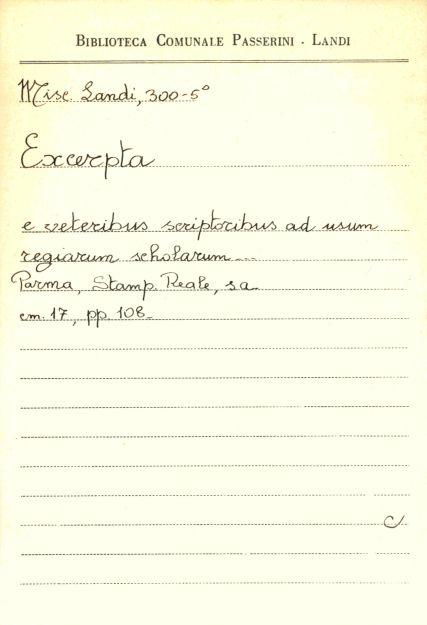 BIBLIOTECA COMUNALE PASSERINI - LANDI
Misc. Landi, 300-5°
Excerpta
e veteribus scriptoribus ad usum
regiarum scholarum...
Parma, Stamp. Reale, s a
cm. 17, pp. 108.
C